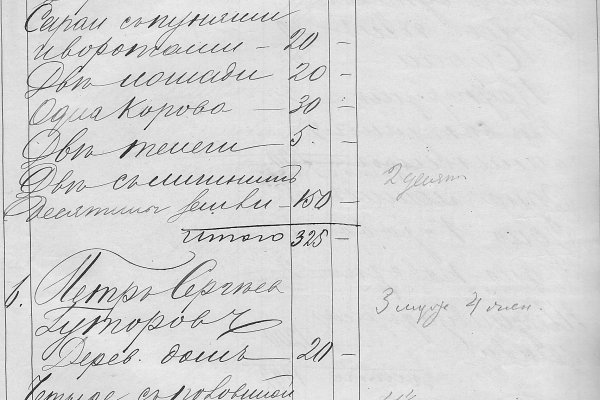 Сараи съ пунями
и воротами — 20 —
Двѣ лошади 20 —
Одна корова — 30 —
Двѣ телеги 5. —
Двѣ съ
Десятины земли — 150 — 2 десят.
Итого 325 —
6. Петръ Сергѣев
Гуторовъ 3 муж. 4 жен.
Дерев. домъ — 20 —